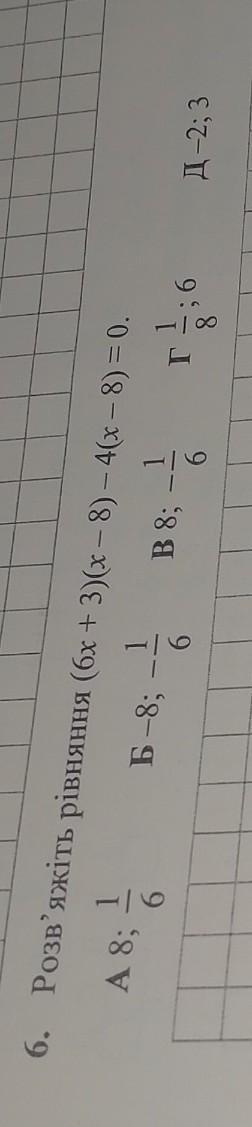 6. Розв’яжіть рівняння (6x + 3)(x – 8) – 4(x – 8) = 0.
А 8; 1/6 Б –8; –1/6 В 8; –1/6 Г 1/8; 6 Д –2; 3